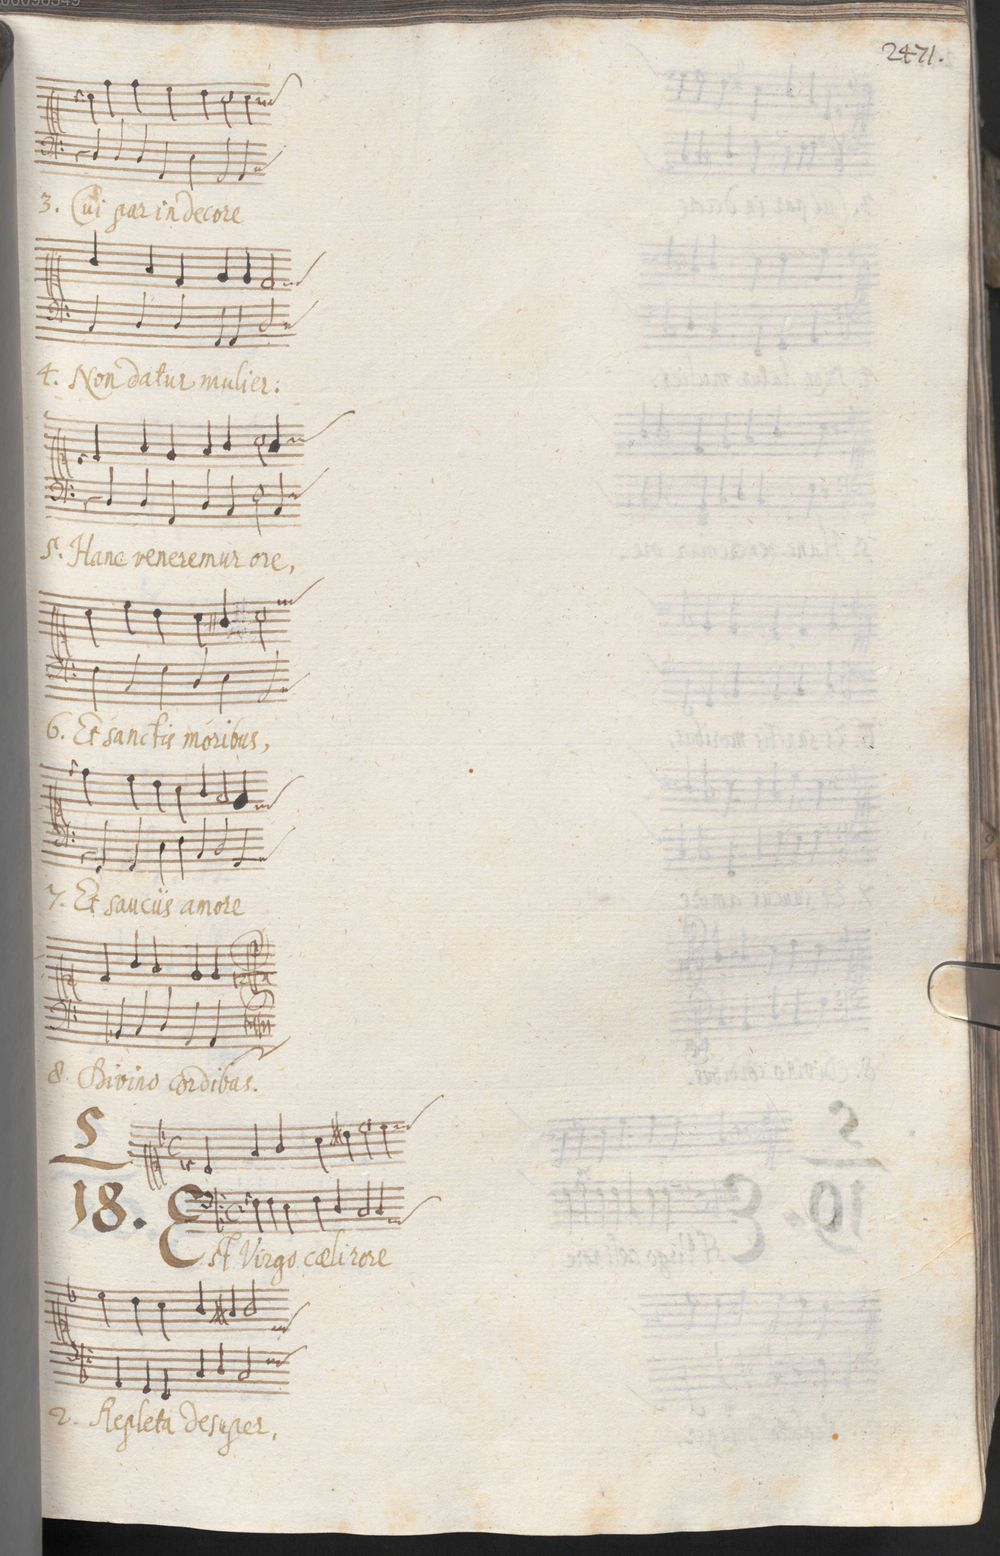 2471.
3. Cui par in decore
4. Non datur mulier:
5. Hanc veneremur ore,
6. Et sanctis moribus,
7. Et sauciis amore
8. Divino cordibus.
5
18. Est Virgo cœli rore
2. Repleta desuper,